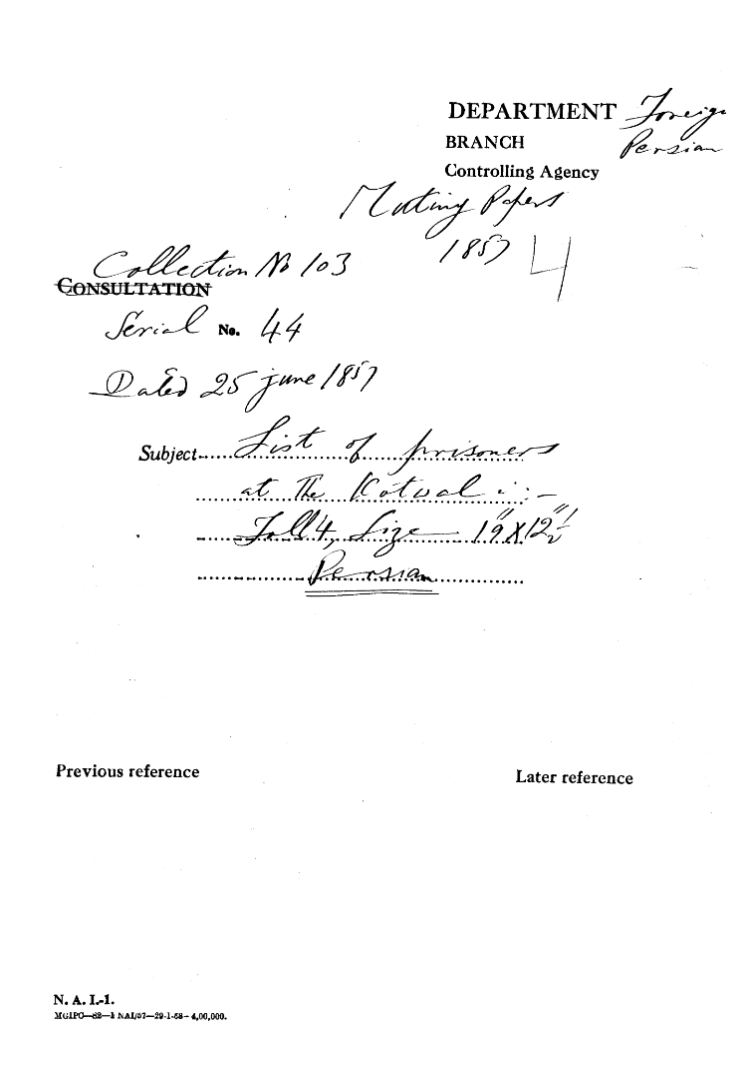 DEPARTMENT Foreign
BRANCH Persian
Controlling Agency
Mutiny Papers
1857 4
Collection No 103
CONSULTATION
Serial No. 44
Dated 25 june 1857
Subject List of prisoners
at The Kotwal
Foll 4, Size 19" X 12½"
Persian
Previous reference
Later reference
N. A. I.-1.
MGIPO—S2—1 NAI/57—29-1-58—4,00,000.